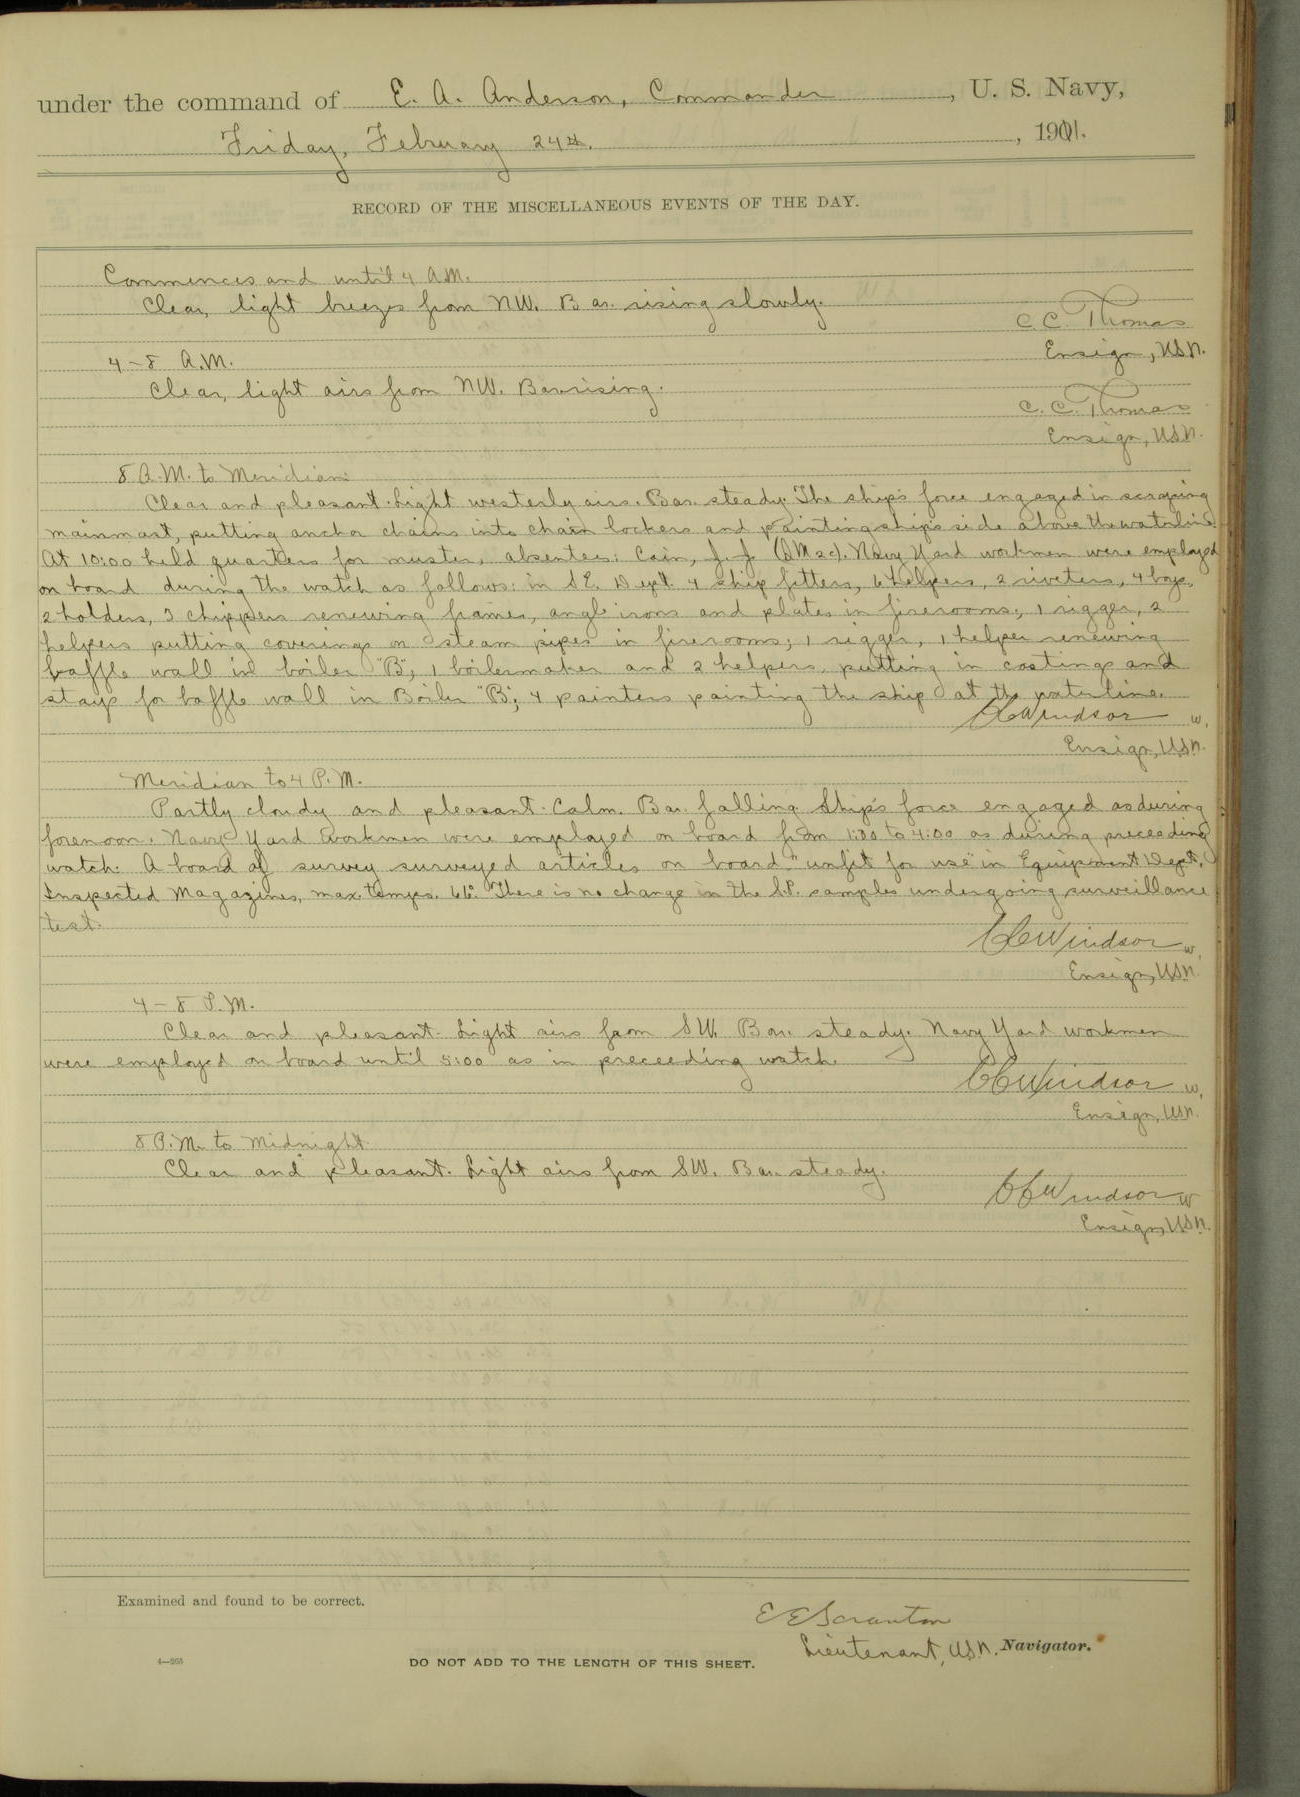 under the command of E. A. Anderson, Commander, U. S. Navy,
Friday, February 24th, 1911.
RECORD OF THE MISCELLANEOUS EVENTS OF THE DAY.
Commences and until 4 A.M.
Clear, light breezes from NW. Bar. rising slowly.
C. C. Thomas
Ensign, USN.
4-8 A.M.
Clear, light airs from NW. Bar rising.
C. C. Thomas
Ensign, USN.
8 A.M. to Meridian:
Clear and pleasant. Light westerly airs. Bar. steady. The ship's force engaged in scraping
mainmast, putting anchor chains into chain lockers and painting ship's side above the waterline.
At 10:00 held quarters for muster, absentees: Cain, J. J. Navy Yard workmen were employed
on board during the watch as follows: in S.E. Dept. 4 ship fitters, 6 helpers, 2 riveters, 4 boys,
2 holders, 3 chippers renewing frames, angle irons and plates in firerooms; 1 rigger, 2
helpers putting coverings on steam pipes in firerooms; 1 rigger, 1 helper renewing
baffle wall in boiler "B"; 1 boilermaker and 2 helpers putting in castings and
stays for baffle wall in Boiler "B"; 4 painters painting the ship at the waterline.
CC Windsor
Ensign, U.S.N.
Meridian to 4 P.M.
Partly cloudy and pleasant. Calm. Bar. falling. Ship's force engaged as during
forenoon. Navy Yard workmen were employed on board from 1:00 to 4:00 as during preceeding
watch. A board of survey surveyed articles on board "unfit for use" in Equipment Dept.
Inspected Magazines, max. temps. 66°. There is no change in the S.P. samples undergoing surveillance
test.
CC Windsor
Ensign, USN.
4-8 P.M.
Clear and pleasant. Light airs from SW. Bar. steady. Navy Yard workmen
were employed on board until 5:00 as in preceeding watch.
CC Windsor
Ensign, USN.
8 P.M. to Midnight.
Clear and pleasant. Light airs from SW. Bar. steady.
CC Windsor
Ensign, USN.
Examined and found to be correct.
E E Scranton
Lieutenant, USN. Navigator.
4—265
DO NOT ADD TO THE LENGTH OF THIS SHEET.